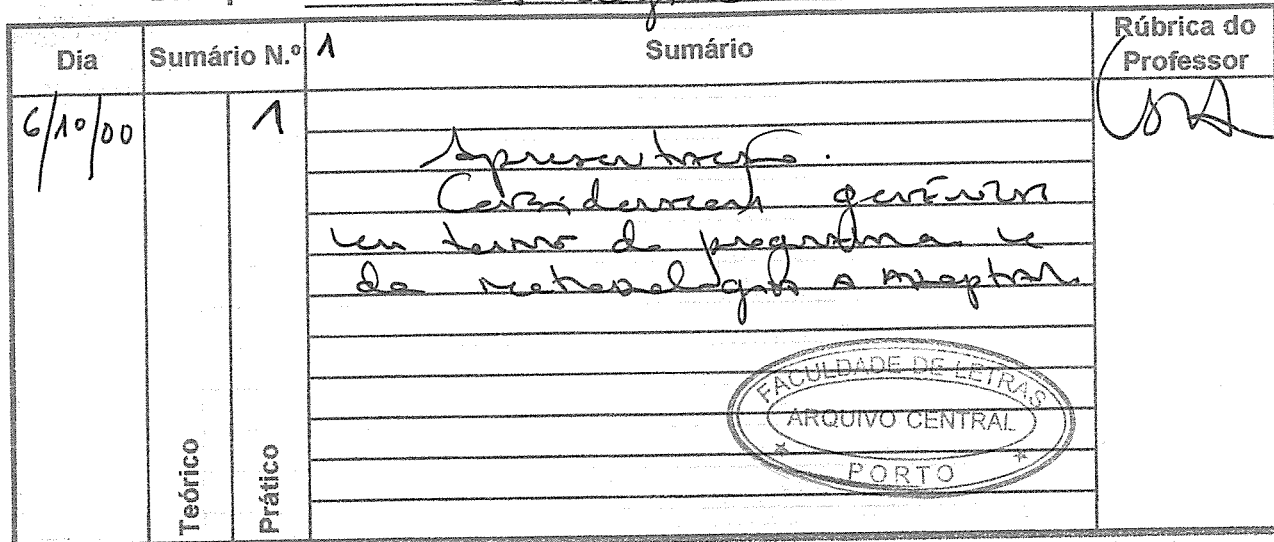 Dia Sumário N.º 1 Sumário Rúbrica do Professor
6/10/00 1
Apresentação.
Considerações genéricas
em termos de programa e
da metodologia a adoptar.
Teórico Prático
FACULDADE DE LETRAS
ARQUIVO CENTRAL
PORTO